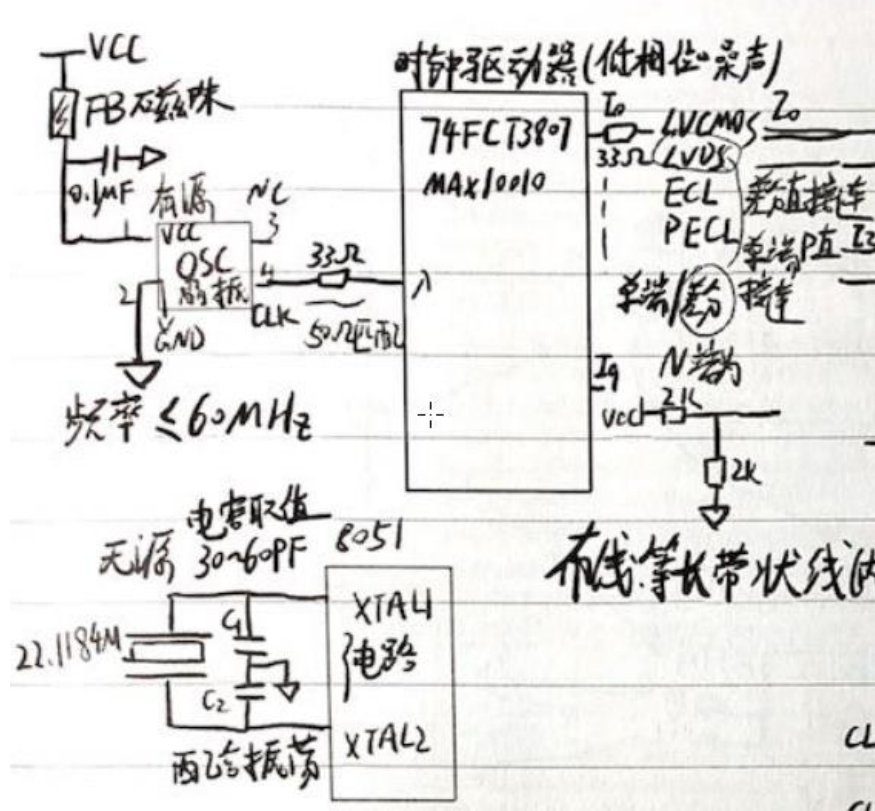 VCC
FB磁珠
0.1μF
有源
NC
1
VCC
3
OSC
晶振
4
2
GND
CLK
33Ω
50Ω匹配
频率≤60MHz
时钟驱动器(低相位噪声)
74FCT3807
MAX10010
I0
33Ω
LVCMOS
Z0
LVDS
ECL
PECL
差值接连
单端P直
接连
I3
单端/差分
I9
N端为
VCC
2K
2K
布线:等长带状线
电容取值
无源
30~60PF
8051
22.1184M
C1
C2
XTAL1
电路
XTAL2
配合振荡
CL
CL